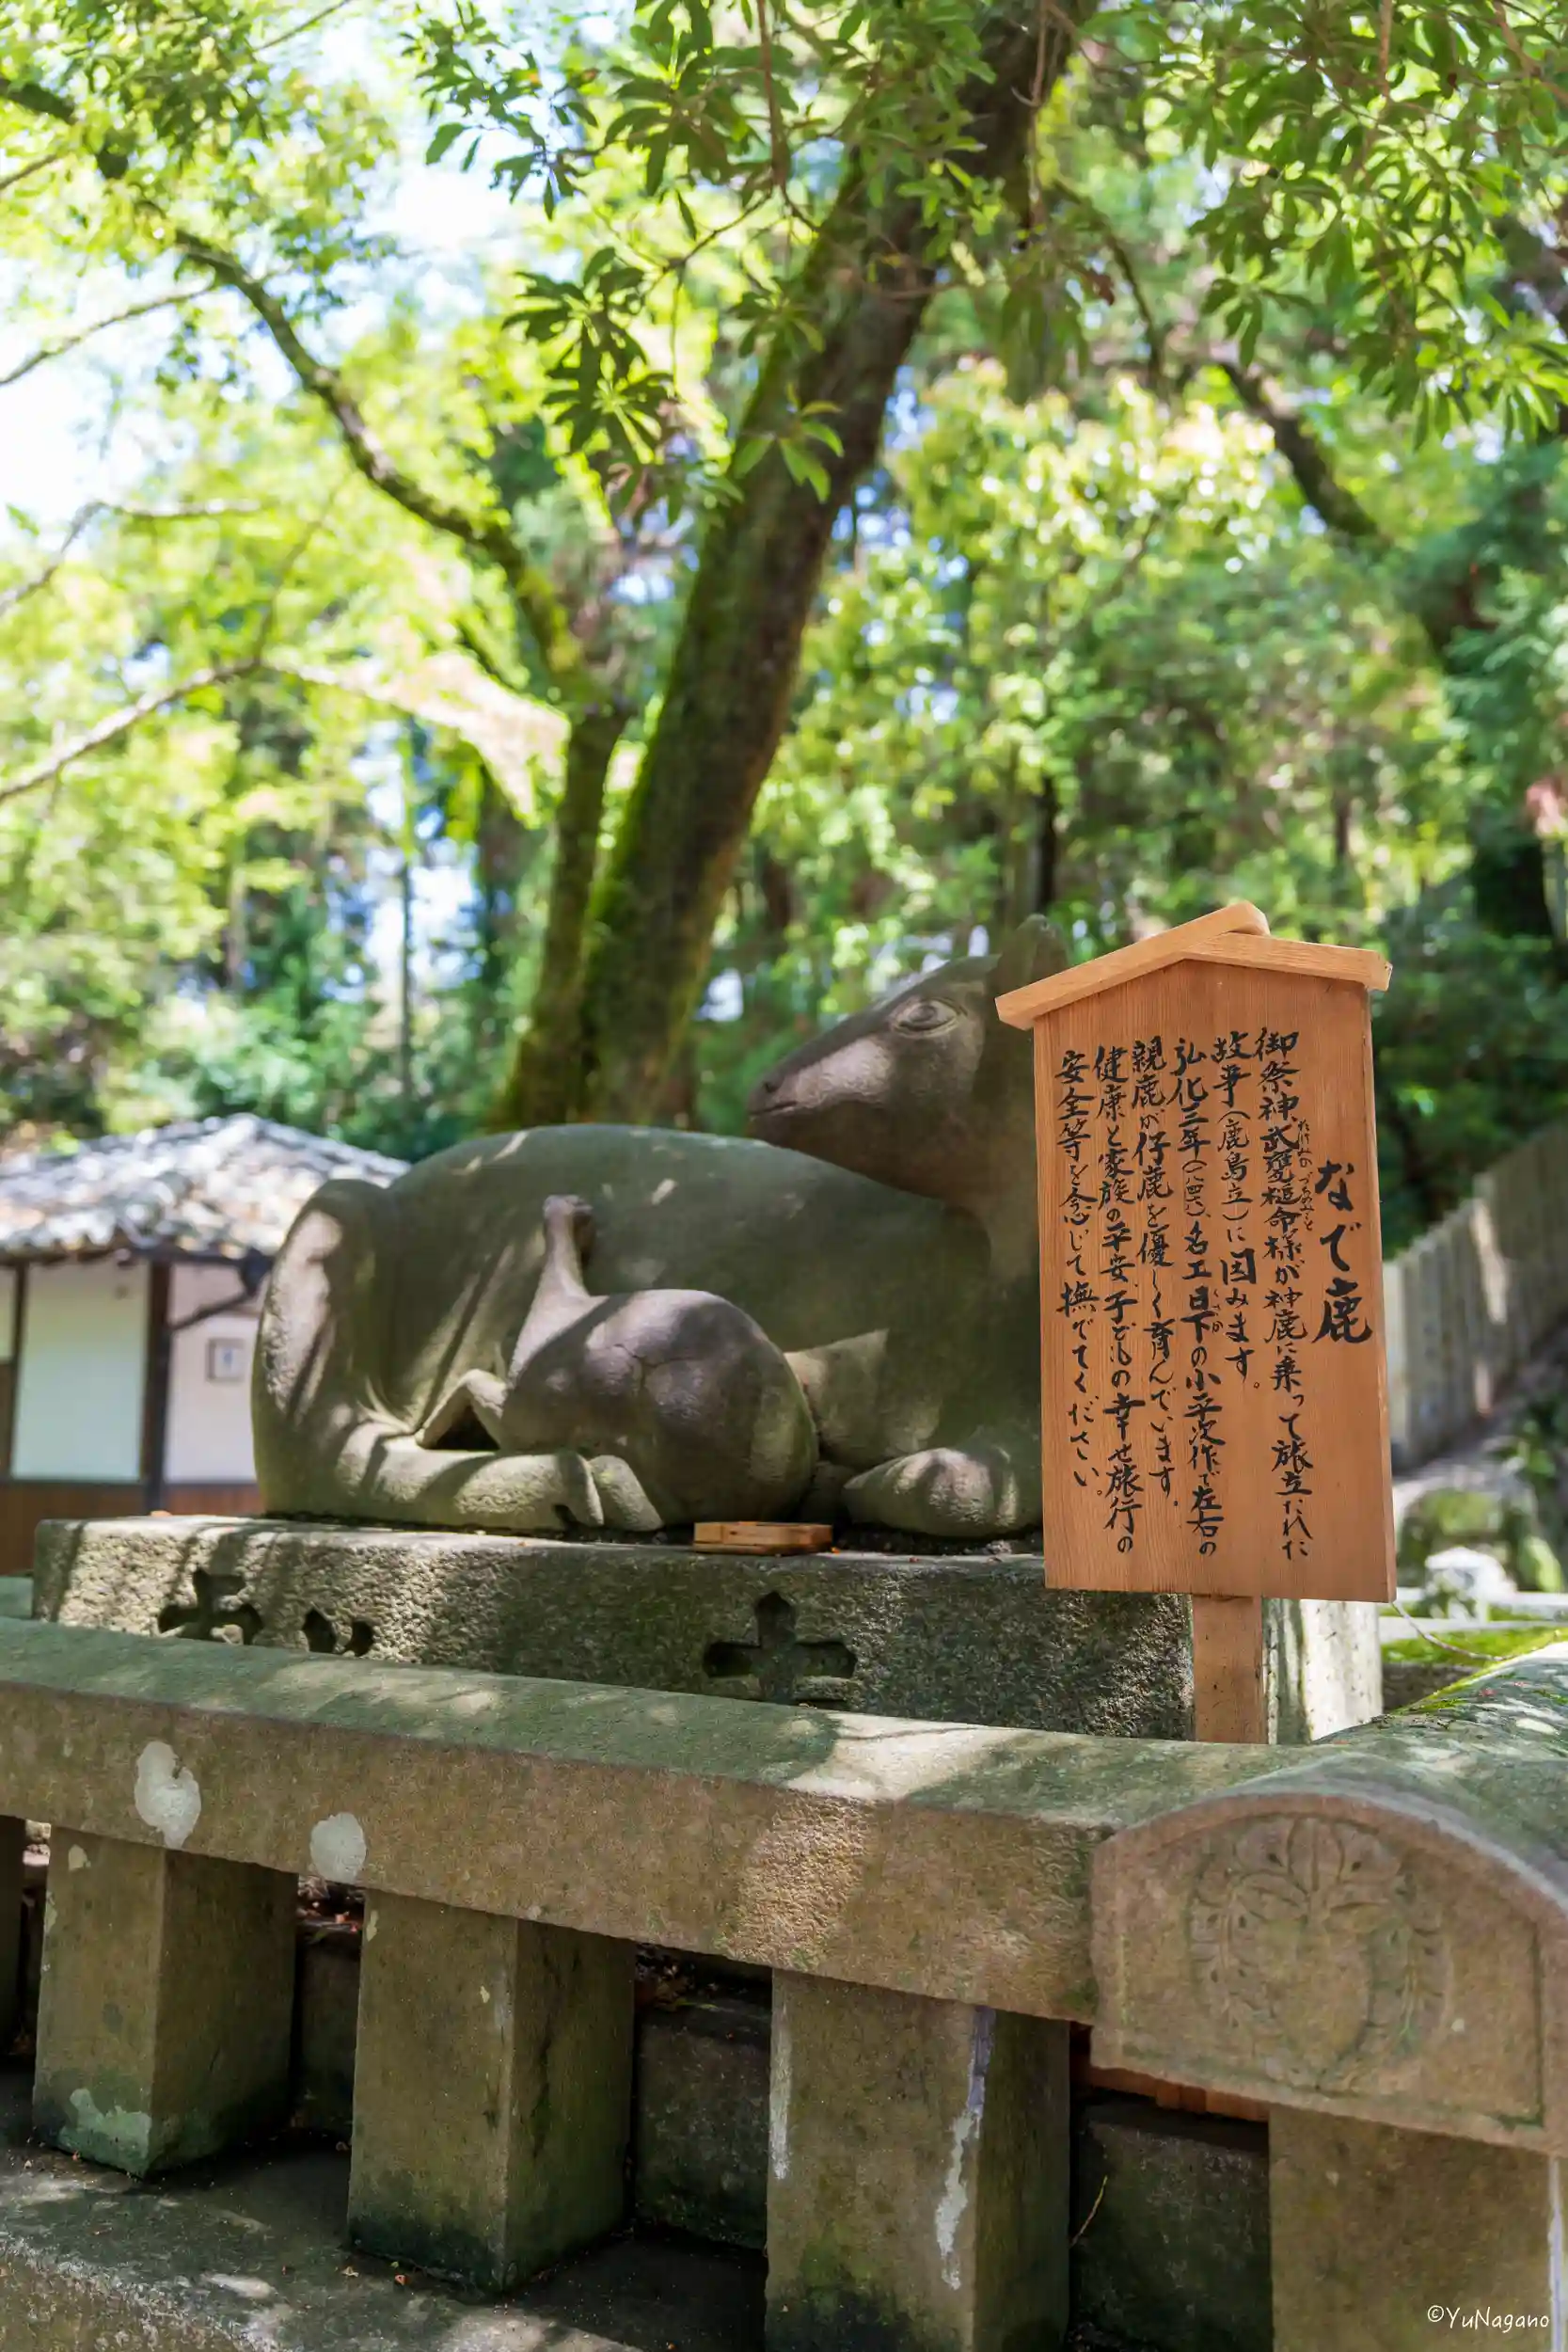 なで鹿
御祭神、武甕槌命様が神鹿に乗って旅立たれた
故事(鹿島立)に因みます。
弘化三年(一八四六)、名工日下の小平次作で左右の
親鹿が仔鹿を優しく育んでいます。
健康と家族の平安、子どもの幸せ旅行の
安全等を念じて撫でてください。
©YuNagano